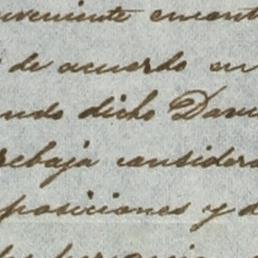 nveniente encont
de acuerdo en
ndo dicho Davi
rebaja considera
posiciones y d